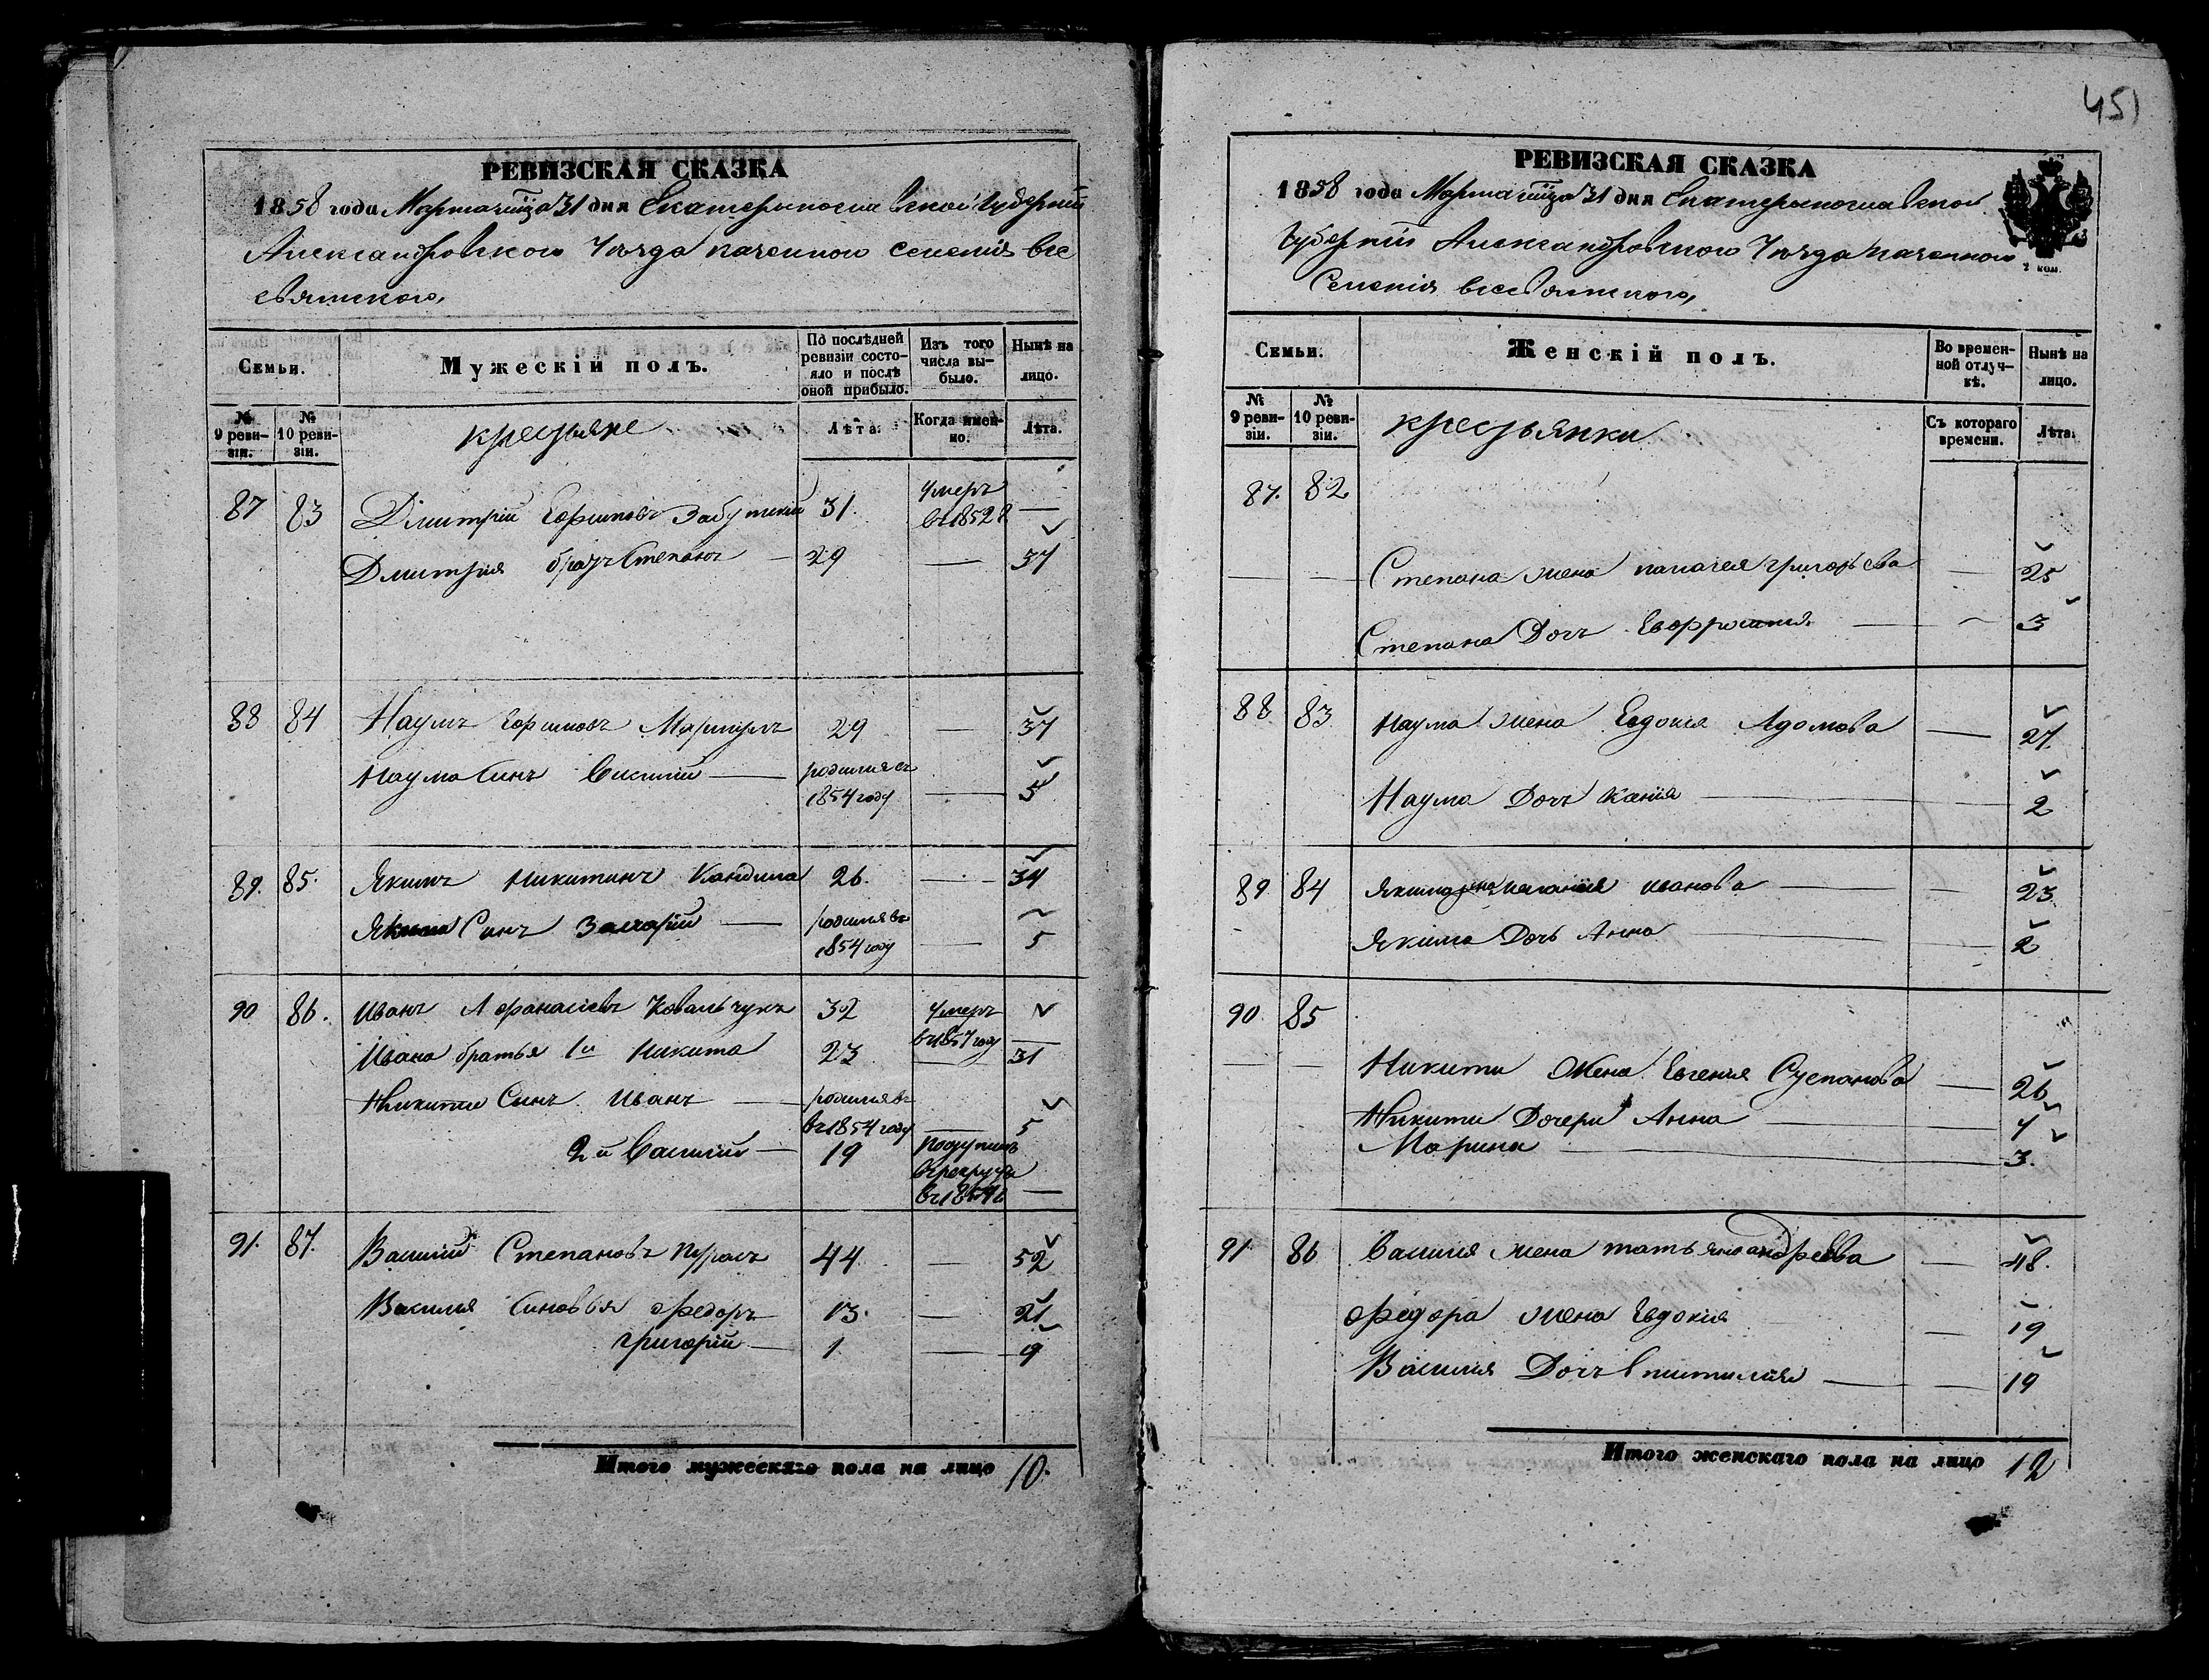 451
РЕВИЗСКАЯ СКАЗКА
1858 года Марта мца 31 дня Екатеринославской Губернии
Александровского Уѣзда казенного селения Все
святского,
Семьи.
Мужескій полъ.
По послѣдней ревизіи состояло и послѣ оной прибыло.
Изъ того числа выбыло.
Нынѣ на лицо.
№ 9 ревизіи.
№ 10 ревизіи.
крестьяне
Лѣта.
Когда именно.
Лѣта.
87 83 Дмитрій Ефимовъ 31. умеръ в 1852 г —
Дмитрия братъ Степанъ — 29 — 37
88 84 Наумъ Ефимовъ 29 — 37
Наума Синъ Василий — родился въ 1854 году — 5
89. 85. Якимъ Никитинъ Кандиба 26. — 34
Якима Синъ Захарій — родился въ 1854 году — 5
90 86. Иванъ Афанасіевъ Ковальчукъ 32 умеръ въ 1857 году —
Ивана братья 1й Никита 23 — 31
Никити Сынъ Иванъ — родился въ въ 1854 году — 5
2й Василий — 19 поступилъ в рекруты —
91. 87. Василий Степановъ 44 — 52
Василия Синовья Федоръ 13. — 21
Григорій — 1 — 9
Итого мужескаго пола на лицо 10.
РЕВИЗСКАЯ СКАЗКА
1858 года Марта мца 31 дня Екатеринославской
Губернии Александровского Уѣзда казенного
Селения Всесвятского,
Семьи.
Женскій полъ.
Во временной отлучкѣ.
Нынѣ на лицо.
№ 9 ревизіи.
№ 10 ревизіи.
крестьянки
Съ котораго времени.
Лѣта.
87. 82
— — Степана жена Палагея Григорьева — 25
Степана Дочъ Евфросиния — — 3
88 83 Наума жена Евдокия Адамова — 27
Наума Дочъ — 2
89 84 Якима жена Мелания Иванова — — 23
Якима Дочь Анна — — 2
90. 85
— — Никити Жена Евгения Степанова — 26
Никити Дочери Анна —
Марина — 3.
91 86 Василия жена Татьяна Андреева — 48.
Федора жена Евдокия — 19
Василия Дочъ — — 19
Итого женскаго пола на лицо 12